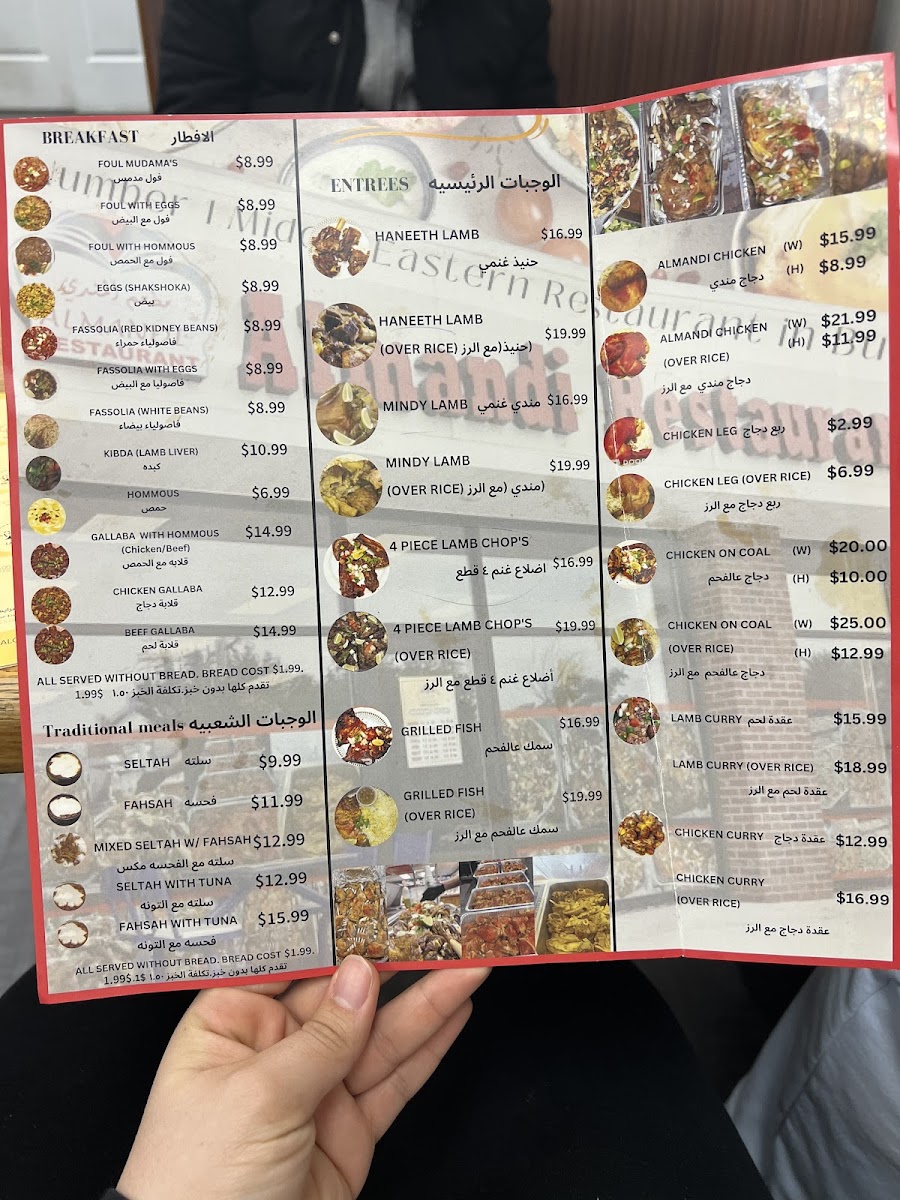 BREAKFAST الافطار
FOUL MUDAMA'S $8.99
فول مدمس
FOUL WITH EGGS $8.99
فول مع البيض
FOUL WITH HOMMOUS $8.99
فول مع الحمص
EGGS (SHAKSHOKA) $8.99
بيض
FASSOLIA (RED KIDNEY BEANS) $8.99
فاصولياء حمراء
FASSOLIA WITH EGGS $8.99
فاصوليا مع البيض
FASSOLIA (WHITE BEANS) $8.99
فاصولياء بيضاء
KIBDA (LAMB LIVER) $10.99
كبده
HOMMOUS $6.99
حمص
GALLABA WITH HOMMOUS $14.99
(Chicken/Beef)
قلابه مع الحمص
CHICKEN GALLABA $12.99
قلابة دجاج
BEEF GALLABA $14.99
قلابة لحم
ALL SERVED WITHOUT BREAD. BREAD COST $1.99.
تقدم كلها بدون خبز.تكلفة الخبز ١.٥٠ $1.99
Traditional meals الوجبات الشعبيه
SELTAH سلته $9.99
FAHSAH فحسه $11.99
MIXED SELTAH W/ FAHSAH $12.99
سلته مع الفحسه مكس
SELTAH WITH TUNA $12.99
سلته مع التونه
FAHSAH WITH TUNA $15.99
فحسه مع التونه
ALL SERVED WITHOUT BREAD. BREAD COST $1.99.
تقدم كلها بدون خبز.تكلفة الخبز ١.٥٠ $1.99.$1
ENTREES الوجبات الرئيسيه
HANEETH LAMB $16.99
حنيذ غنمي
HANEETH LAMB $19.99
(OVER RICE) حنيذ(مع الرز)
MINDY LAMB مندي غنمي $16.99
MINDY LAMB $19.99
(OVER RICE) مندي (مع الرز)
4 PIECE LAMB CHOP'S $16.99
اضلاع غنم ٤ قطع
4 PIECE LAMB CHOP'S $19.99
(OVER RICE)
أضلاع غنم ٤ قطع مع الرز
GRILLED FISH $16.99
سمك عالفحم
GRILLED FISH $19.99
(OVER RICE)
سمك عالفحم مع الرز
ALMANDI CHICKEN (W) $15.99
دجاج مندي (H) $8.99
ALMANDI CHICKEN (W) $21.99
(OVER RICE) (H) $11.99
دجاج مندي مع الرز
CHICKEN LEG ربع دجاج $2.99
CHICKEN LEG (OVER RICE) $6.99
ربع دجاج مع الرز
CHICKEN ON COAL (W) $20.00
دجاج عالفحم (H) $10.00
CHICKEN ON COAL (W) $25.00
(OVER RICE) (H) $12.99
دجاج عالفحم مع الرز
LAMB CURRY عقدة لحم $15.99
LAMB CURRY (OVER RICE) $18.99
عقدة لحم مع الرز
CHICKEN CURRY عقدة دجاج $12.99
CHICKEN CURRY
(OVER RICE) $16.99
عقدة دجاج مع الرز
Number 1 Middle Eastern Restaurant in Bu
Almandi Restaurant
ALMANDI
RESTAURANT